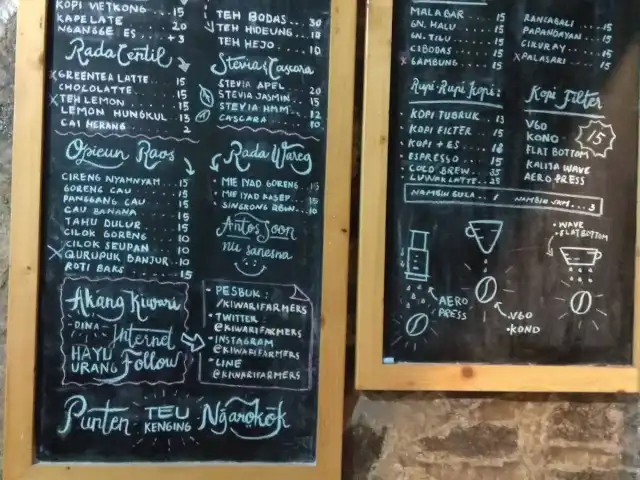 KOPI VIETKONG .. 15
KAPE LATE ..... 20
NGANGGE ES .. + 3
Rada Centil
GREENTEA LATTE . 15
CHOCOLATTE .... 15
TEH LEMON .... 15
LEMON HUNGKUL . 13
CAI HERANG .... 2
TEH BODAS .. 30
TEH HIDEUNG .. 10
TEH HEJO .... 10
Stevia & Cascara
STEVIA APEL .... 20
STEVIA JASMIN .. 15
STEVIA HMM ... 12
CASCARA ..... 10
Opieun Raos
CIRENG NYAMNYAM .. 15
GORENG CAU ..... 15
PANGGANG CAU ... 15
CAU BANANA .... 15
TAHU DULUR .... 15
CILOK GORENG ... 10
CILOK SEUPAN ... 10
QURUPUK BANJUR . 10
ROTI BAKS ..... 15
Rada Wareg
MIE IYAD GORENG . 15
MIE IYAD KASEP .. 15
SINGKONG ... 10
Antos Soon
nu sanesna
Akang Kiwari
- DINA -
Internet
HAYU
URANG Follow
• PESBUK :
/KIWARIFARMERS
• TWITTER
@KIWARIFARMERS
• INSTAGRAM
@KIWARIFARMERS
• LINE
@KIWARIFARMERS
Punten TEU KENGING Ngarokok
MALABAR .... 15
GN. HALU .... 15
GN. TILU .... 15
CIBODAS .... 15
GAMBUNG .... 15
RANCABALI .... 15
PAPANDAYAN ... 15
CIKURAY .... 15
PALASARI .... 15
Rupi-Rupi Kopi :
• KOPI TUBRUK . 13
• KOPI FILTER .. 15
• KOPI + ES ... 18
• ESPRESSO ... 15
• COLD BREW ... 35
• LUWAK LATTE .. 35
Kopi Filter
V60
KONO
FLAT BOTTOM
KALITA WAVE
AERO PRESS
15
NAMBIH GULA .. 1 NAMBIH JAM ... 3
AERO
PRESS
• V60
• KONO
• WAVE
• FLATBOTTOM